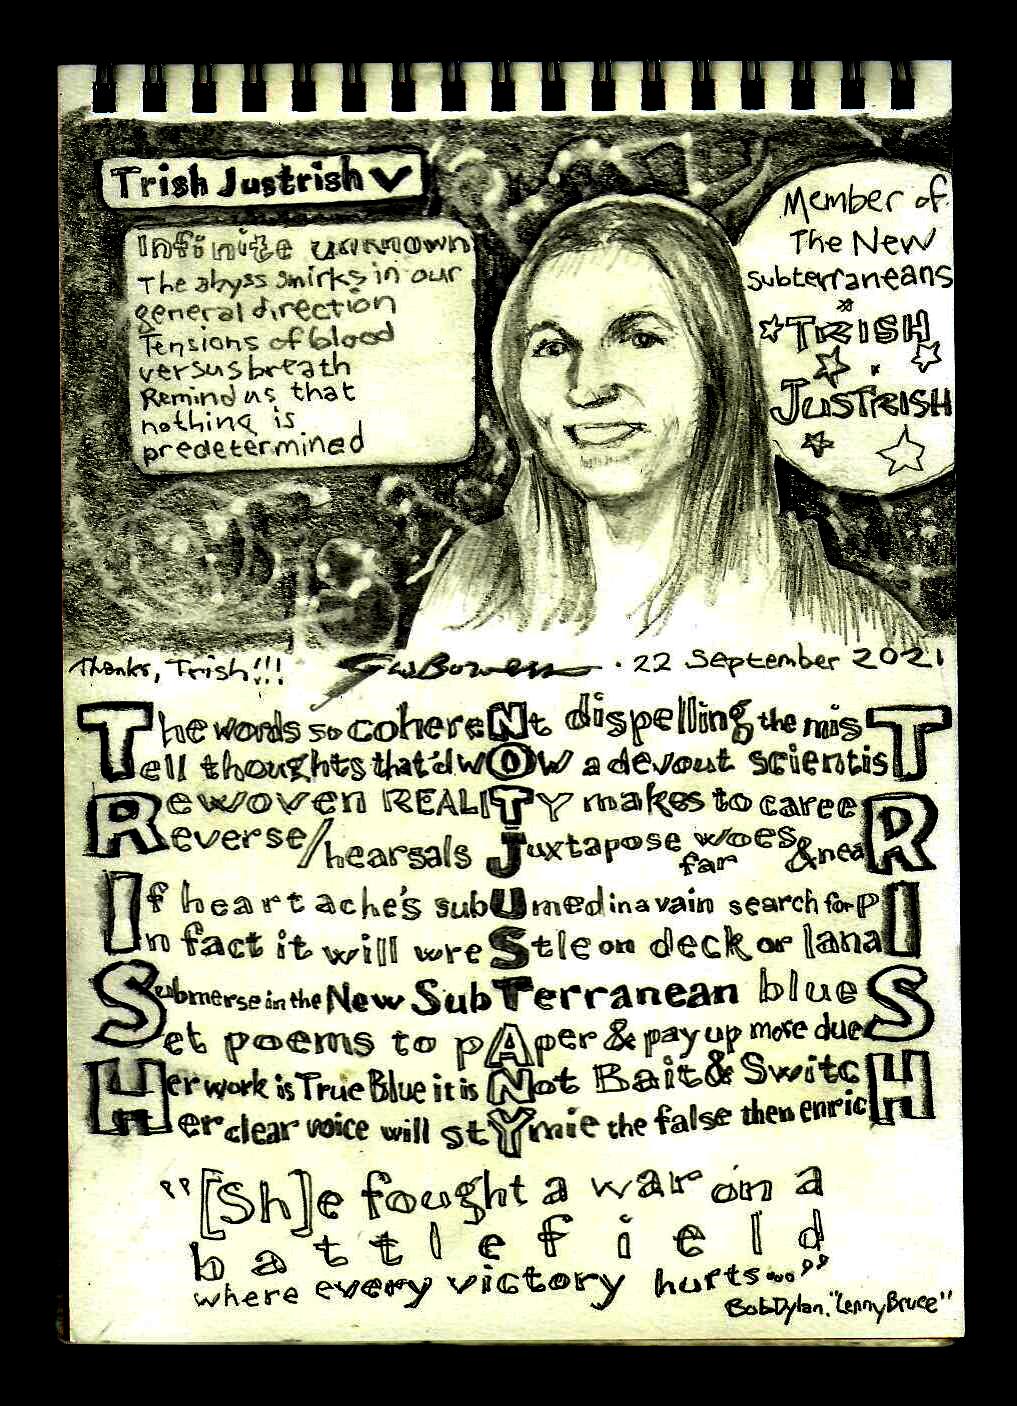 Trish Justrish
Infinite unknown
The abyss smirks in our
general direction
Tensions of blood
versus breath
Remind us that
nothing is
predetermined
Member of
The New
Subterraneans
TRISH
JUSTRISH
Thanks, Trish!!! GwBowen · 22 September 2021
The words so cohereNt dispelling the misT
Tell thoughts that'd wOw a devout scientisT
Rewoven REALITY makes to careeR
Reverse/hearsals Juxtapose woes far & neaR
If heartache's subUmed in a vain search for pI
In fact it will wreStle on deck or lanaI
Submerse in the New SubTerranean blueS
Set poems to pAper & pay up more dueS
Her work is True Blue it is Not Bait & SwitcH
Her clear voice will stYmie the false then enricH
"[Sh]e fought a war on a
battlefield
where every victory hurts..."
Bob Dylan, "Lenny Bruce"